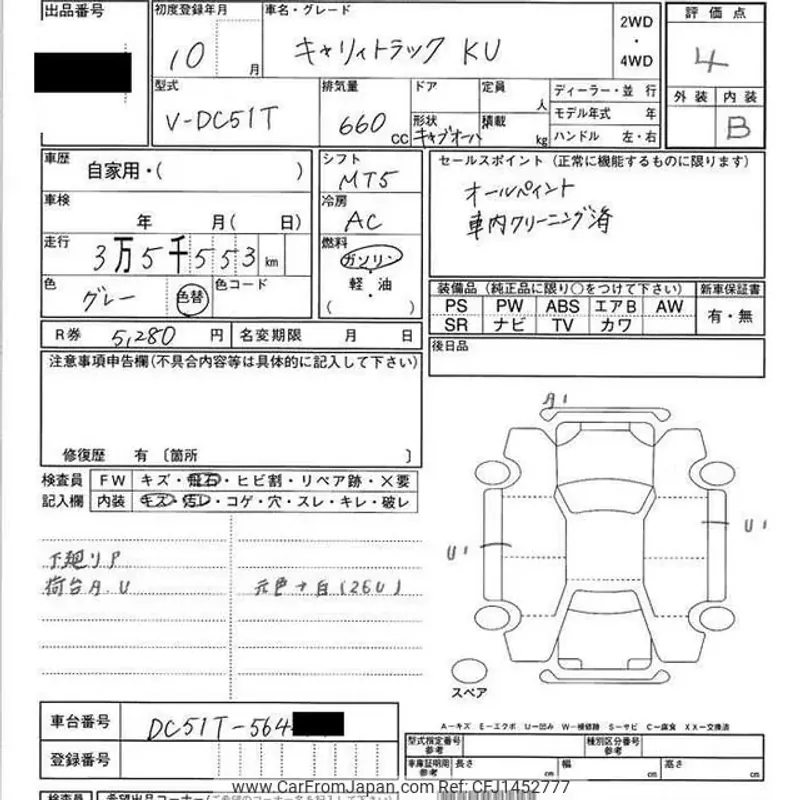 出品番号
初度登録年月 車名・グレード
10 月 キャリィトラック KU
2WD・4WD
評価点
4
外装 内装
B
型式 排気量 ドア 定員 人
V-DC51T 660 CC
形状 積載 kg
キャブオーバ
ディーラー・並 行
モデル年式 年
ハンドル 左・右
車歴 自家用・( )
シフト
MT5
車検 年 月( 日)
冷房
AC
走行
3万5千553 km
燃料
ガソリン・軽・油
( )
色 色替 色コード
グレー
R券 5,280 円 名変期限 月 日
セールスポイント (正常に機能するものに限ります)
オールペイント
車内クリーニング済
装備品 (純正品に限り○をつけて下さい) 新車保証書
PS PW ABS エアB AW 有・無
SR ナビ TV カワ
後日品
注意事項申告欄(不具合内容等は具体的に記入して下さい)
修復歴 有 〔箇所 〕
検査員 FW キズ・飛石・ヒビ割・リペア跡・×要
記入欄 内装 キズ・汚レ・コゲ・穴・スレ・キレ・破レ
A1
U1
U1
下廻りP
荷台A.U 元色→白(26U)
スペア
A−キズ E−エクボ U−凹み W−補修跡 S−サビ C−腐食 XX−交換済
車台番号 DC51T-564
登録番号
型式指定番号 参考 種別区分番号 参考
車庫証明用 参考 長さ cm 幅 cm 高さ cm
www.CarFromJapan.com Ref: CFJ1452777
検査員 希望出品コーナー(ご希望のコーナー名を記入して下さい)